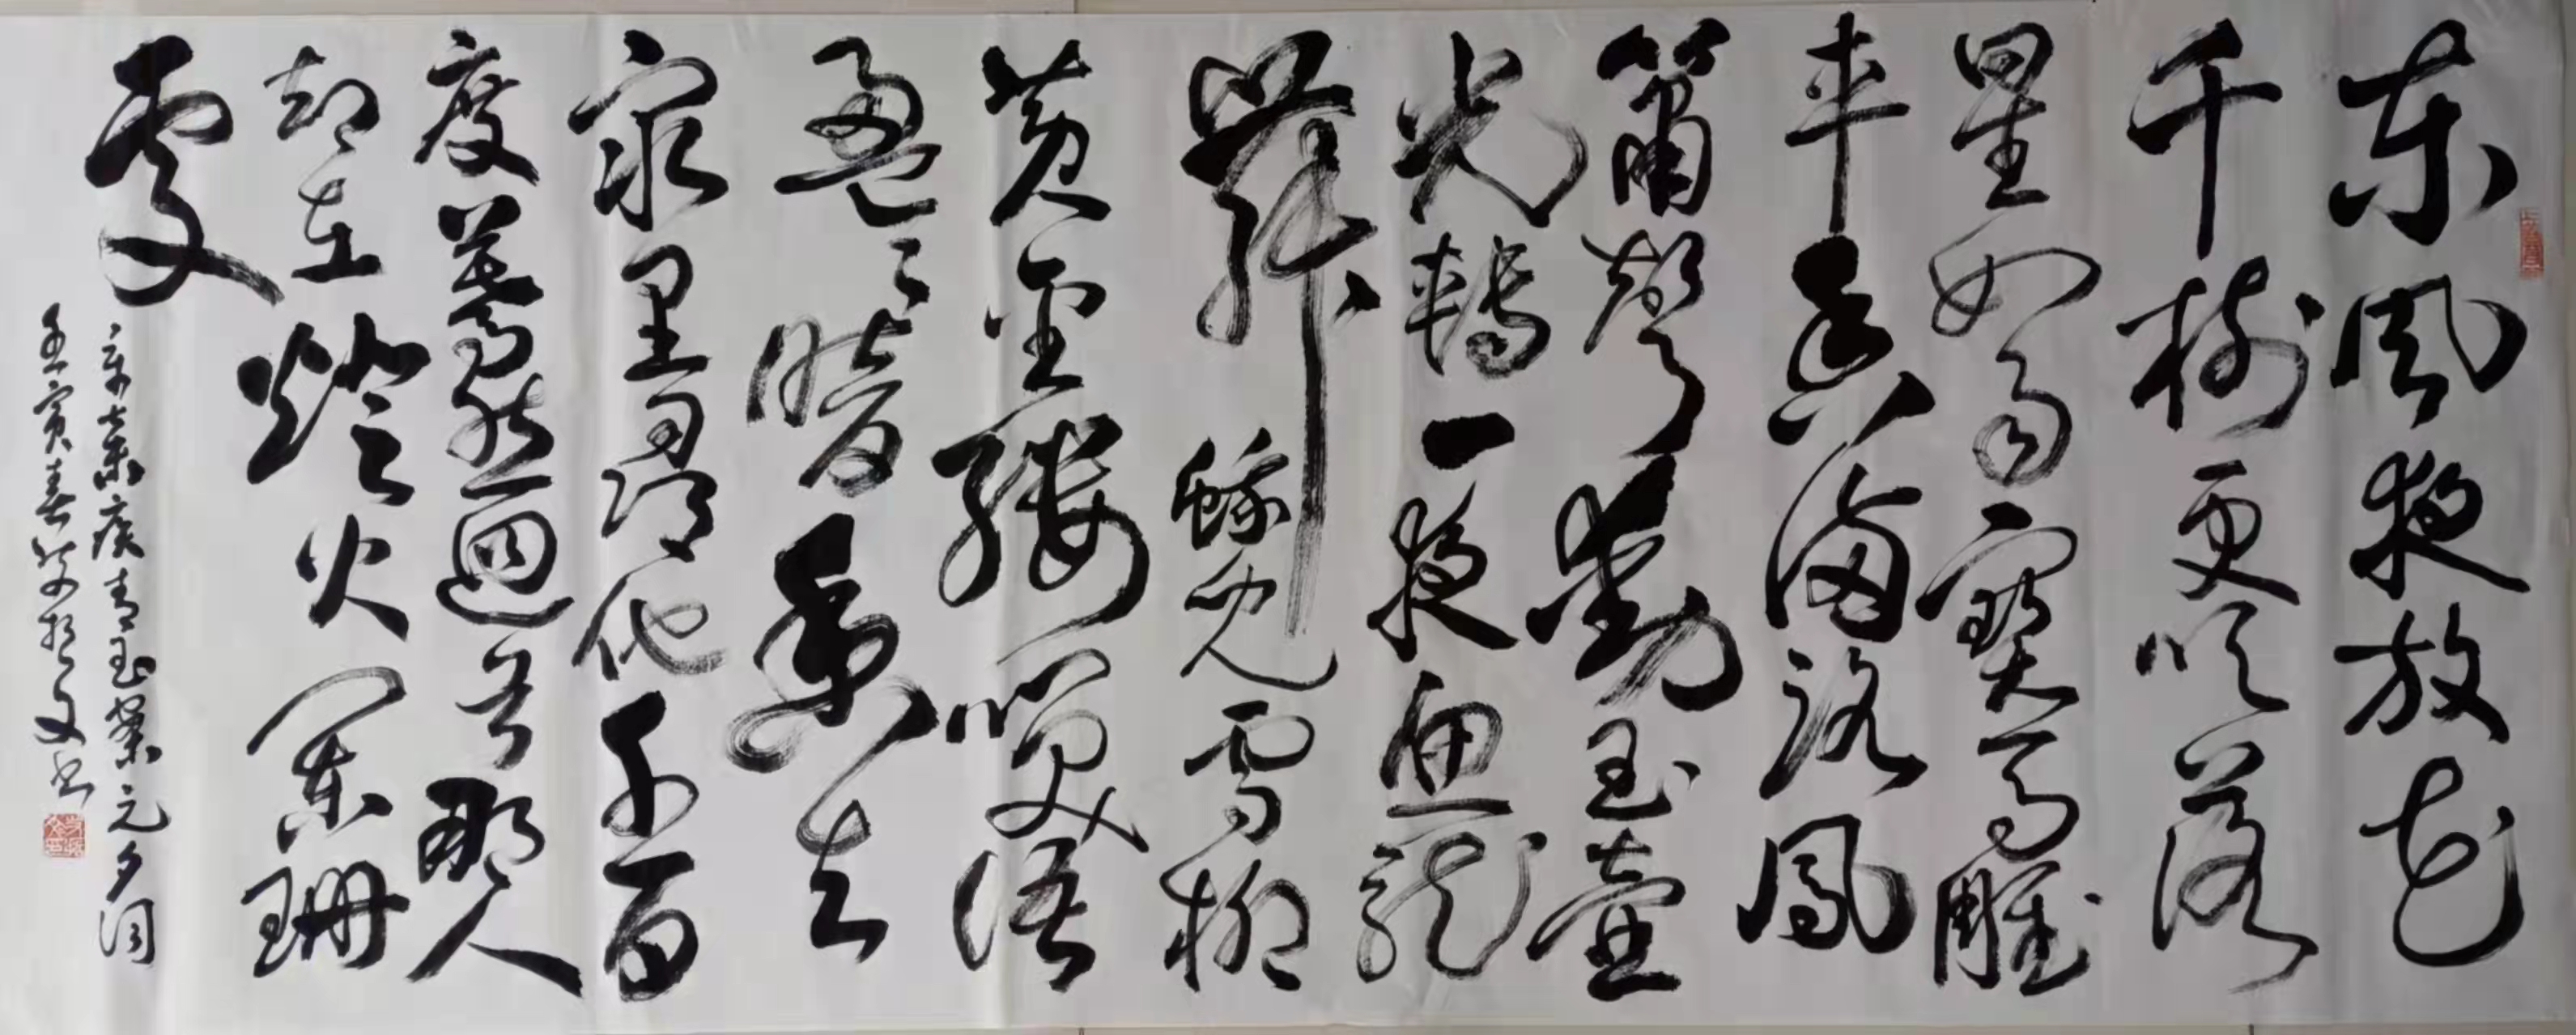 東風夜放花
千樹更吹落
星如雨寶馬雕
車香滿路鳳
簫聲動玉壺
光轉一夜魚龍
舞蛾兒雪柳
黄金縷笑語
盈〻暗香去
衆里尋他千百
度驀然迴首那人
却在燈火闌珊
處
辛棄疾青玉案元夕詞
壬寅春文书